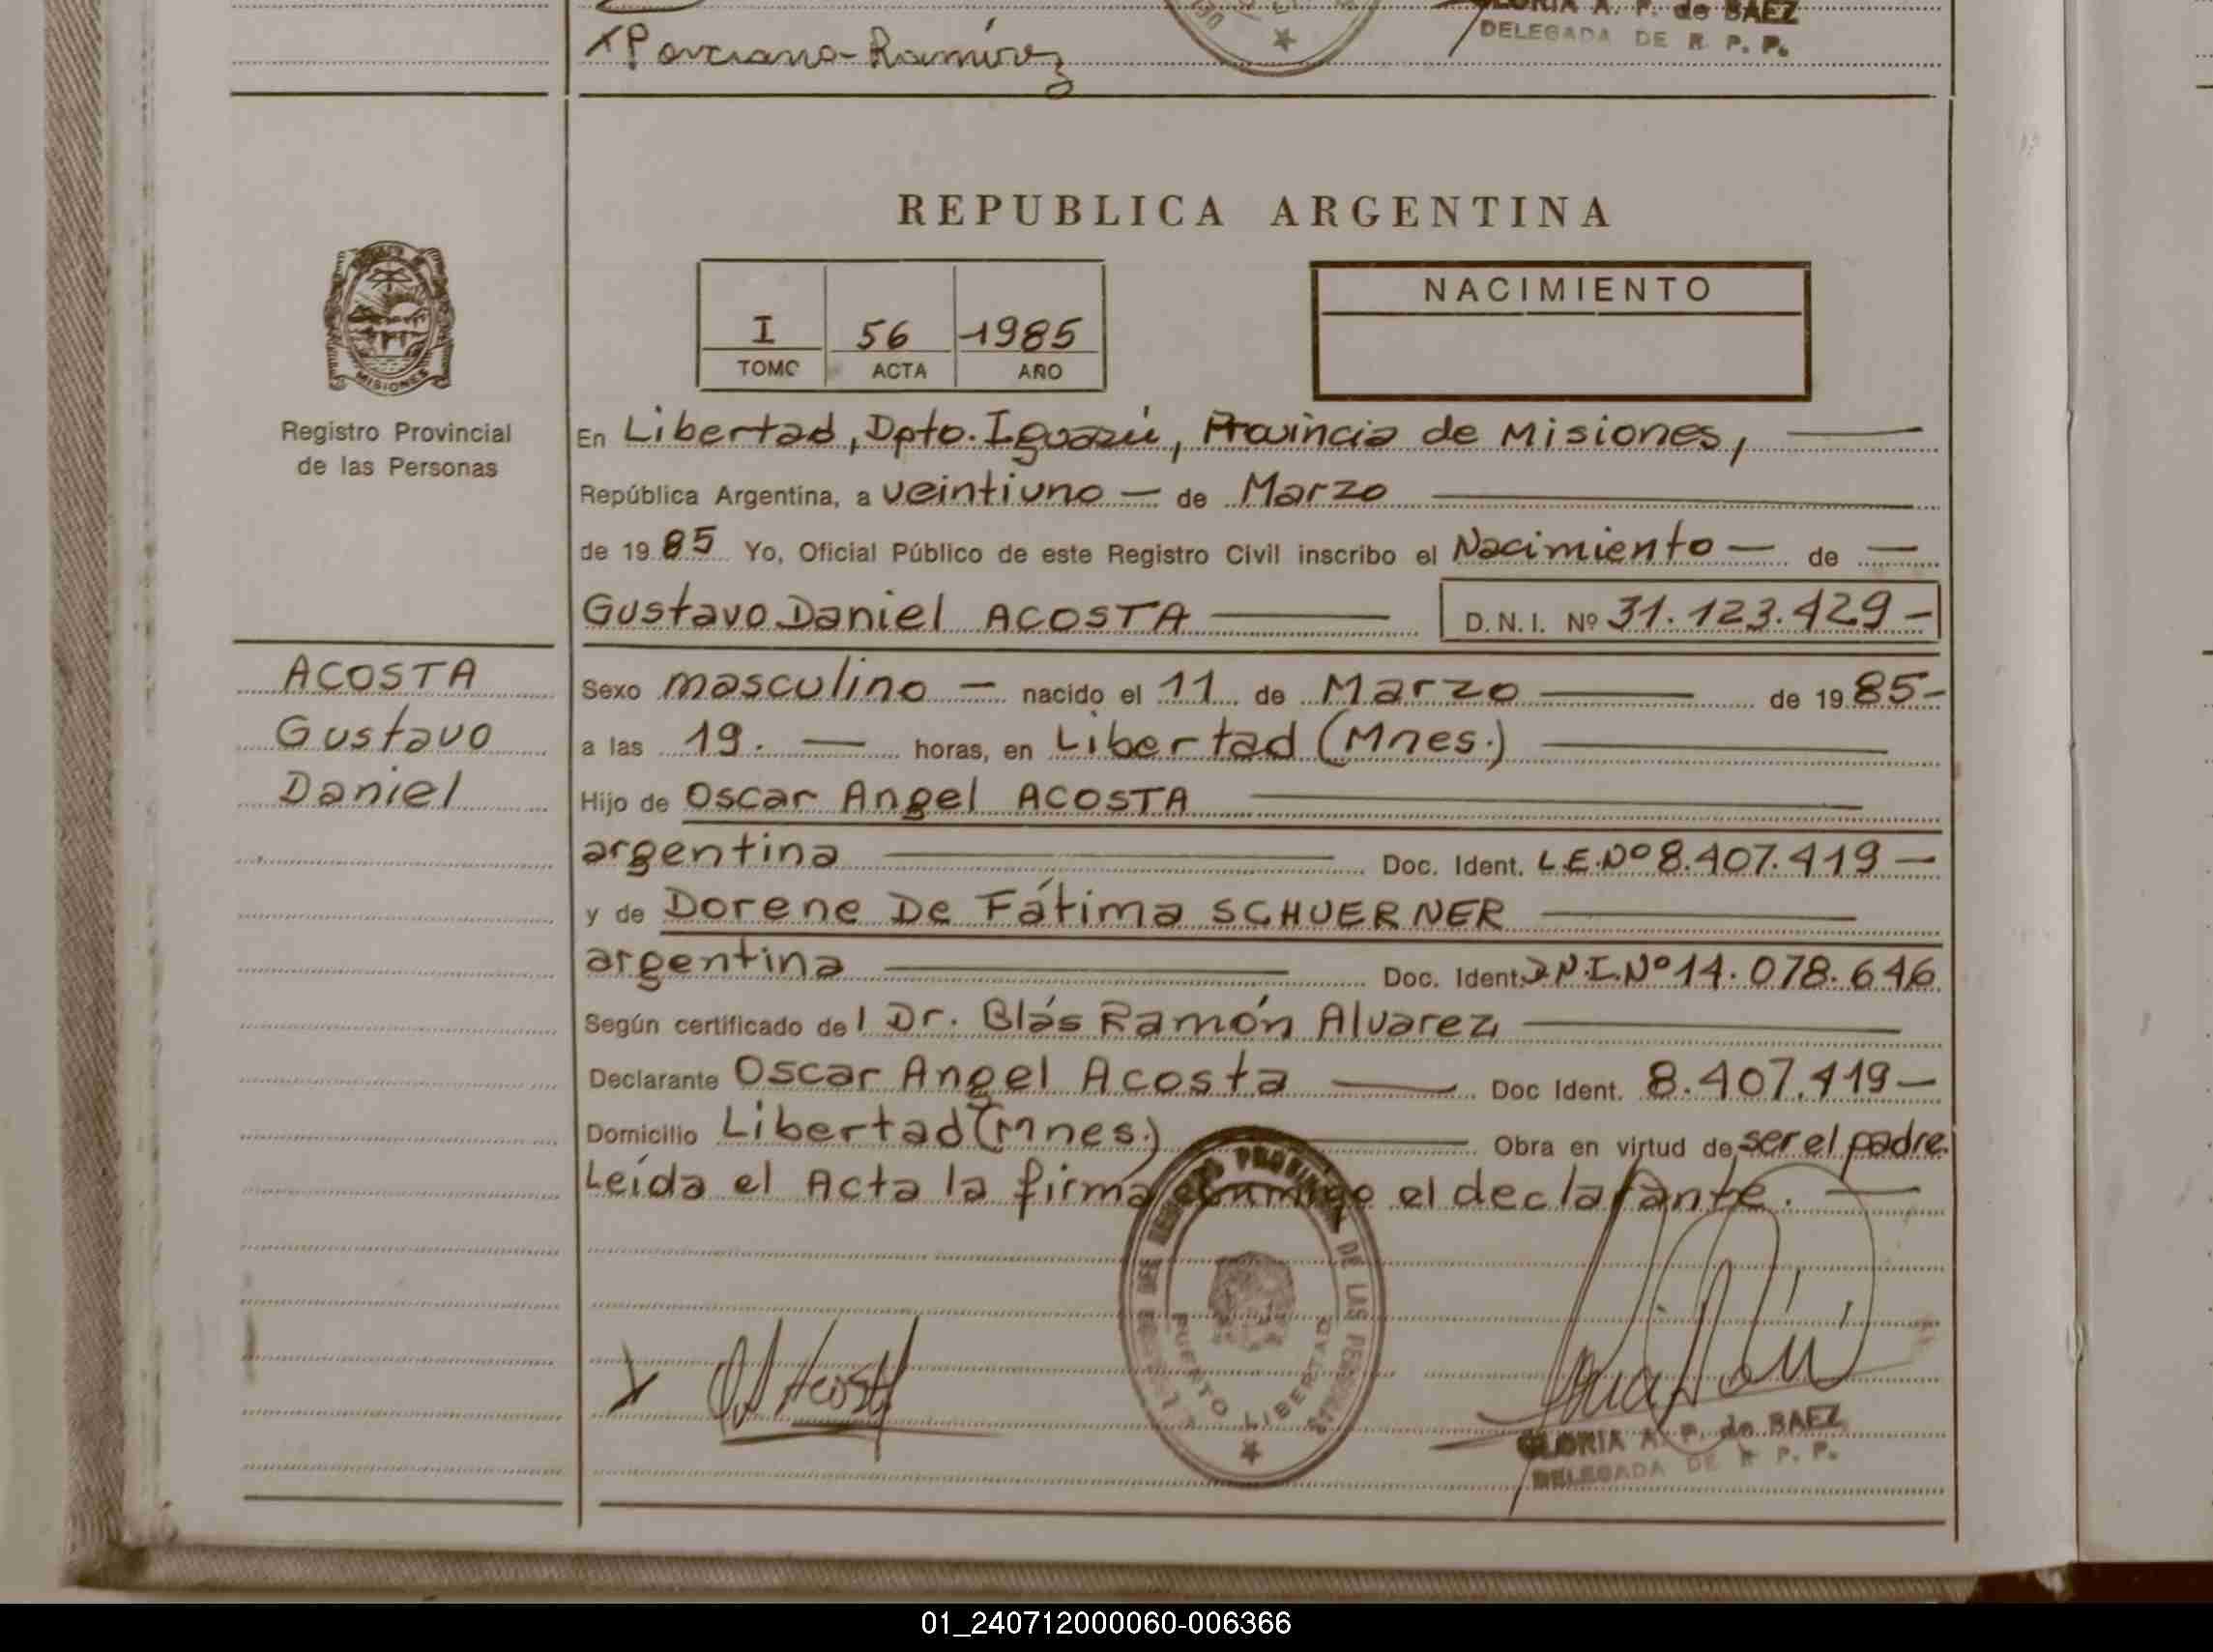 GLORIA A. P. de BAEZ
DELEGADA DE R. P. P.
Ramírez
REPUBLICA ARGENTINA
MISIONES
Registro Provincial
de las Personas
I 56 1985
TOMO ACTA AÑO
NACIMIENTO
En Libertad, Dpto. Iguazú, Provincia de Misiones, —
República Argentina, a veintiuno — de Marzo —
de 19 85 Yo, Oficial Público de este Registro Civil inscribo el Nacimiento — de —
Gustavo Daniel ACOSTA — D.N.I. Nº 31.123.429 –
ACOSTA
Gustavo
Daniel
Sexo masculino — nacido el 11 de Marzo — de 19 85 –
a las 19. — horas, en Libertad (Mnes.) —
Hijo de Oscar Angel ACOSTA —
argentina — Doc. Ident. L.E.Nº 8.407.419 —
y de Dorene De Fátima SCHUERNER —
argentina — Doc. Ident. D.N.I.Nº 14.078.646
Según certificado del Dr. Blás Ramón Alvarez —
Declarante Oscar Angel Acosta — Doc Ident. 8.407.419 —
Domicilio Libertad (Mnes.) — Obra en virtud de ser el padre.
Leída el Acta la firma conmigo el declarante. —
REGISTRO PROVINCIAL DE LAS PERSONAS
PUERTO LIBERTAD
Acosta
GLORIA A. P. de BAEZ
DELEGADA DE R. P. P.
01_240712000060-006366